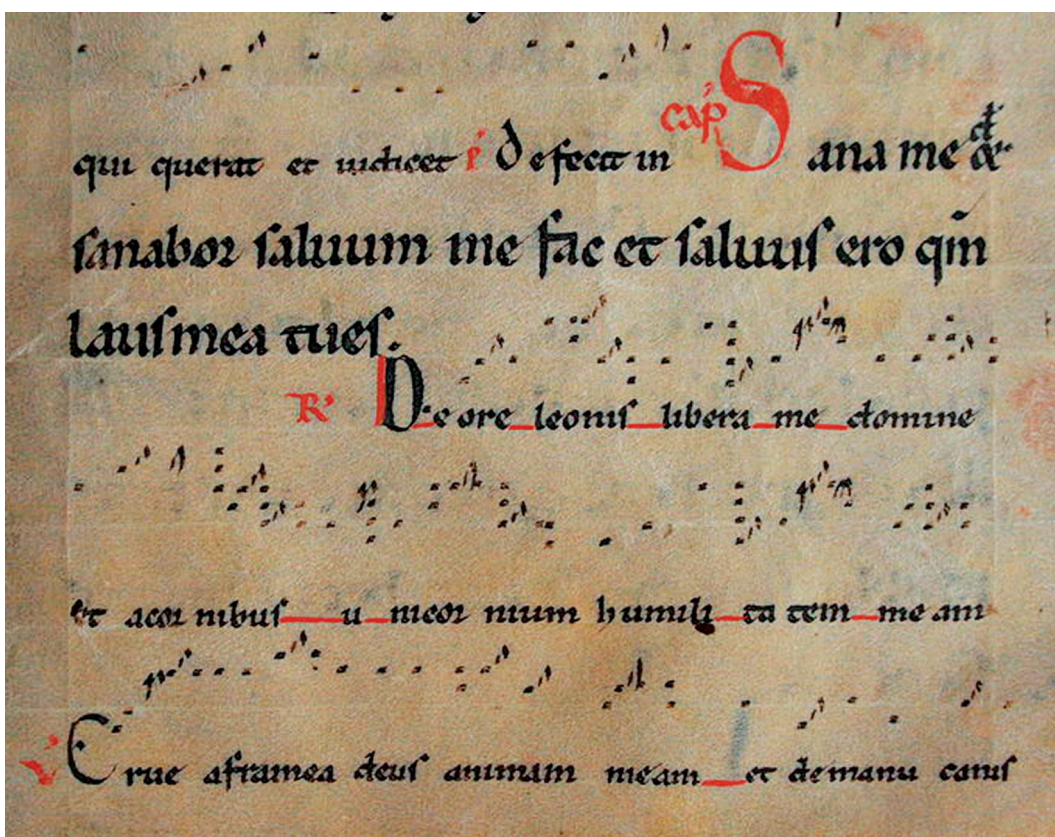 qui querat et iudicet ṽ Defecit in cap̃ Sana me dñe
sanabor saluum me fac et saluus ero qm̃
laus mea tu es.
R̃ De ore leonis libera me domine
et acor nibus u nicor nium humili ta tem me am
Ṽ Erue aframea deus animam meam et demanu canis